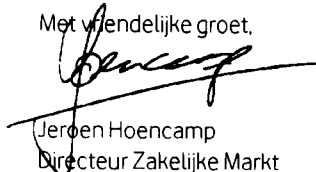 Met vriendelijke groet,
Hoencamp
Jeroen Hoencamp
Directeur Zakelijke Markt